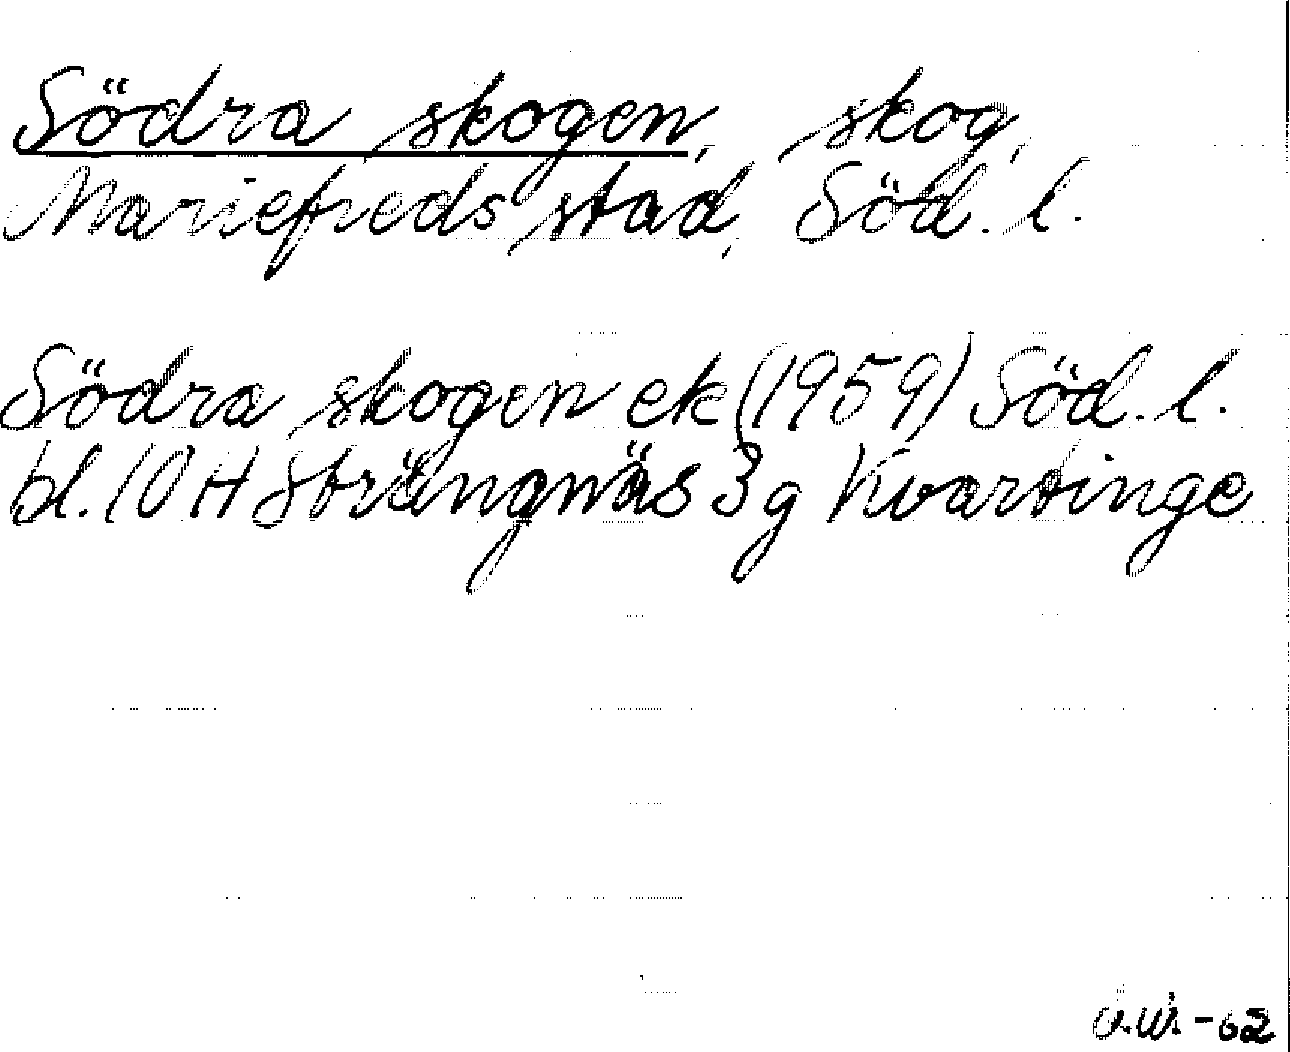 Södra skogen, skog,
Mariefreds stad, Söd. l.
Södra skogen ek (1959) Söd. l.
bl. 10 H Strängnäs 3 g Kvartinge
-62